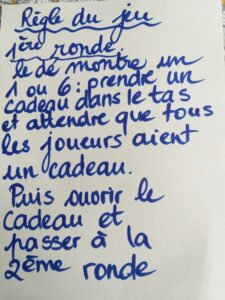 Règle du jeu
1ère ronde.
le dé montre un
1 ou 6 : prendre un
cadeau dans le tas
et attendre que tous
les joueurs aient
un cadeau.
Puis ouvrir le
cadeau et
passer à la
2ème ronde